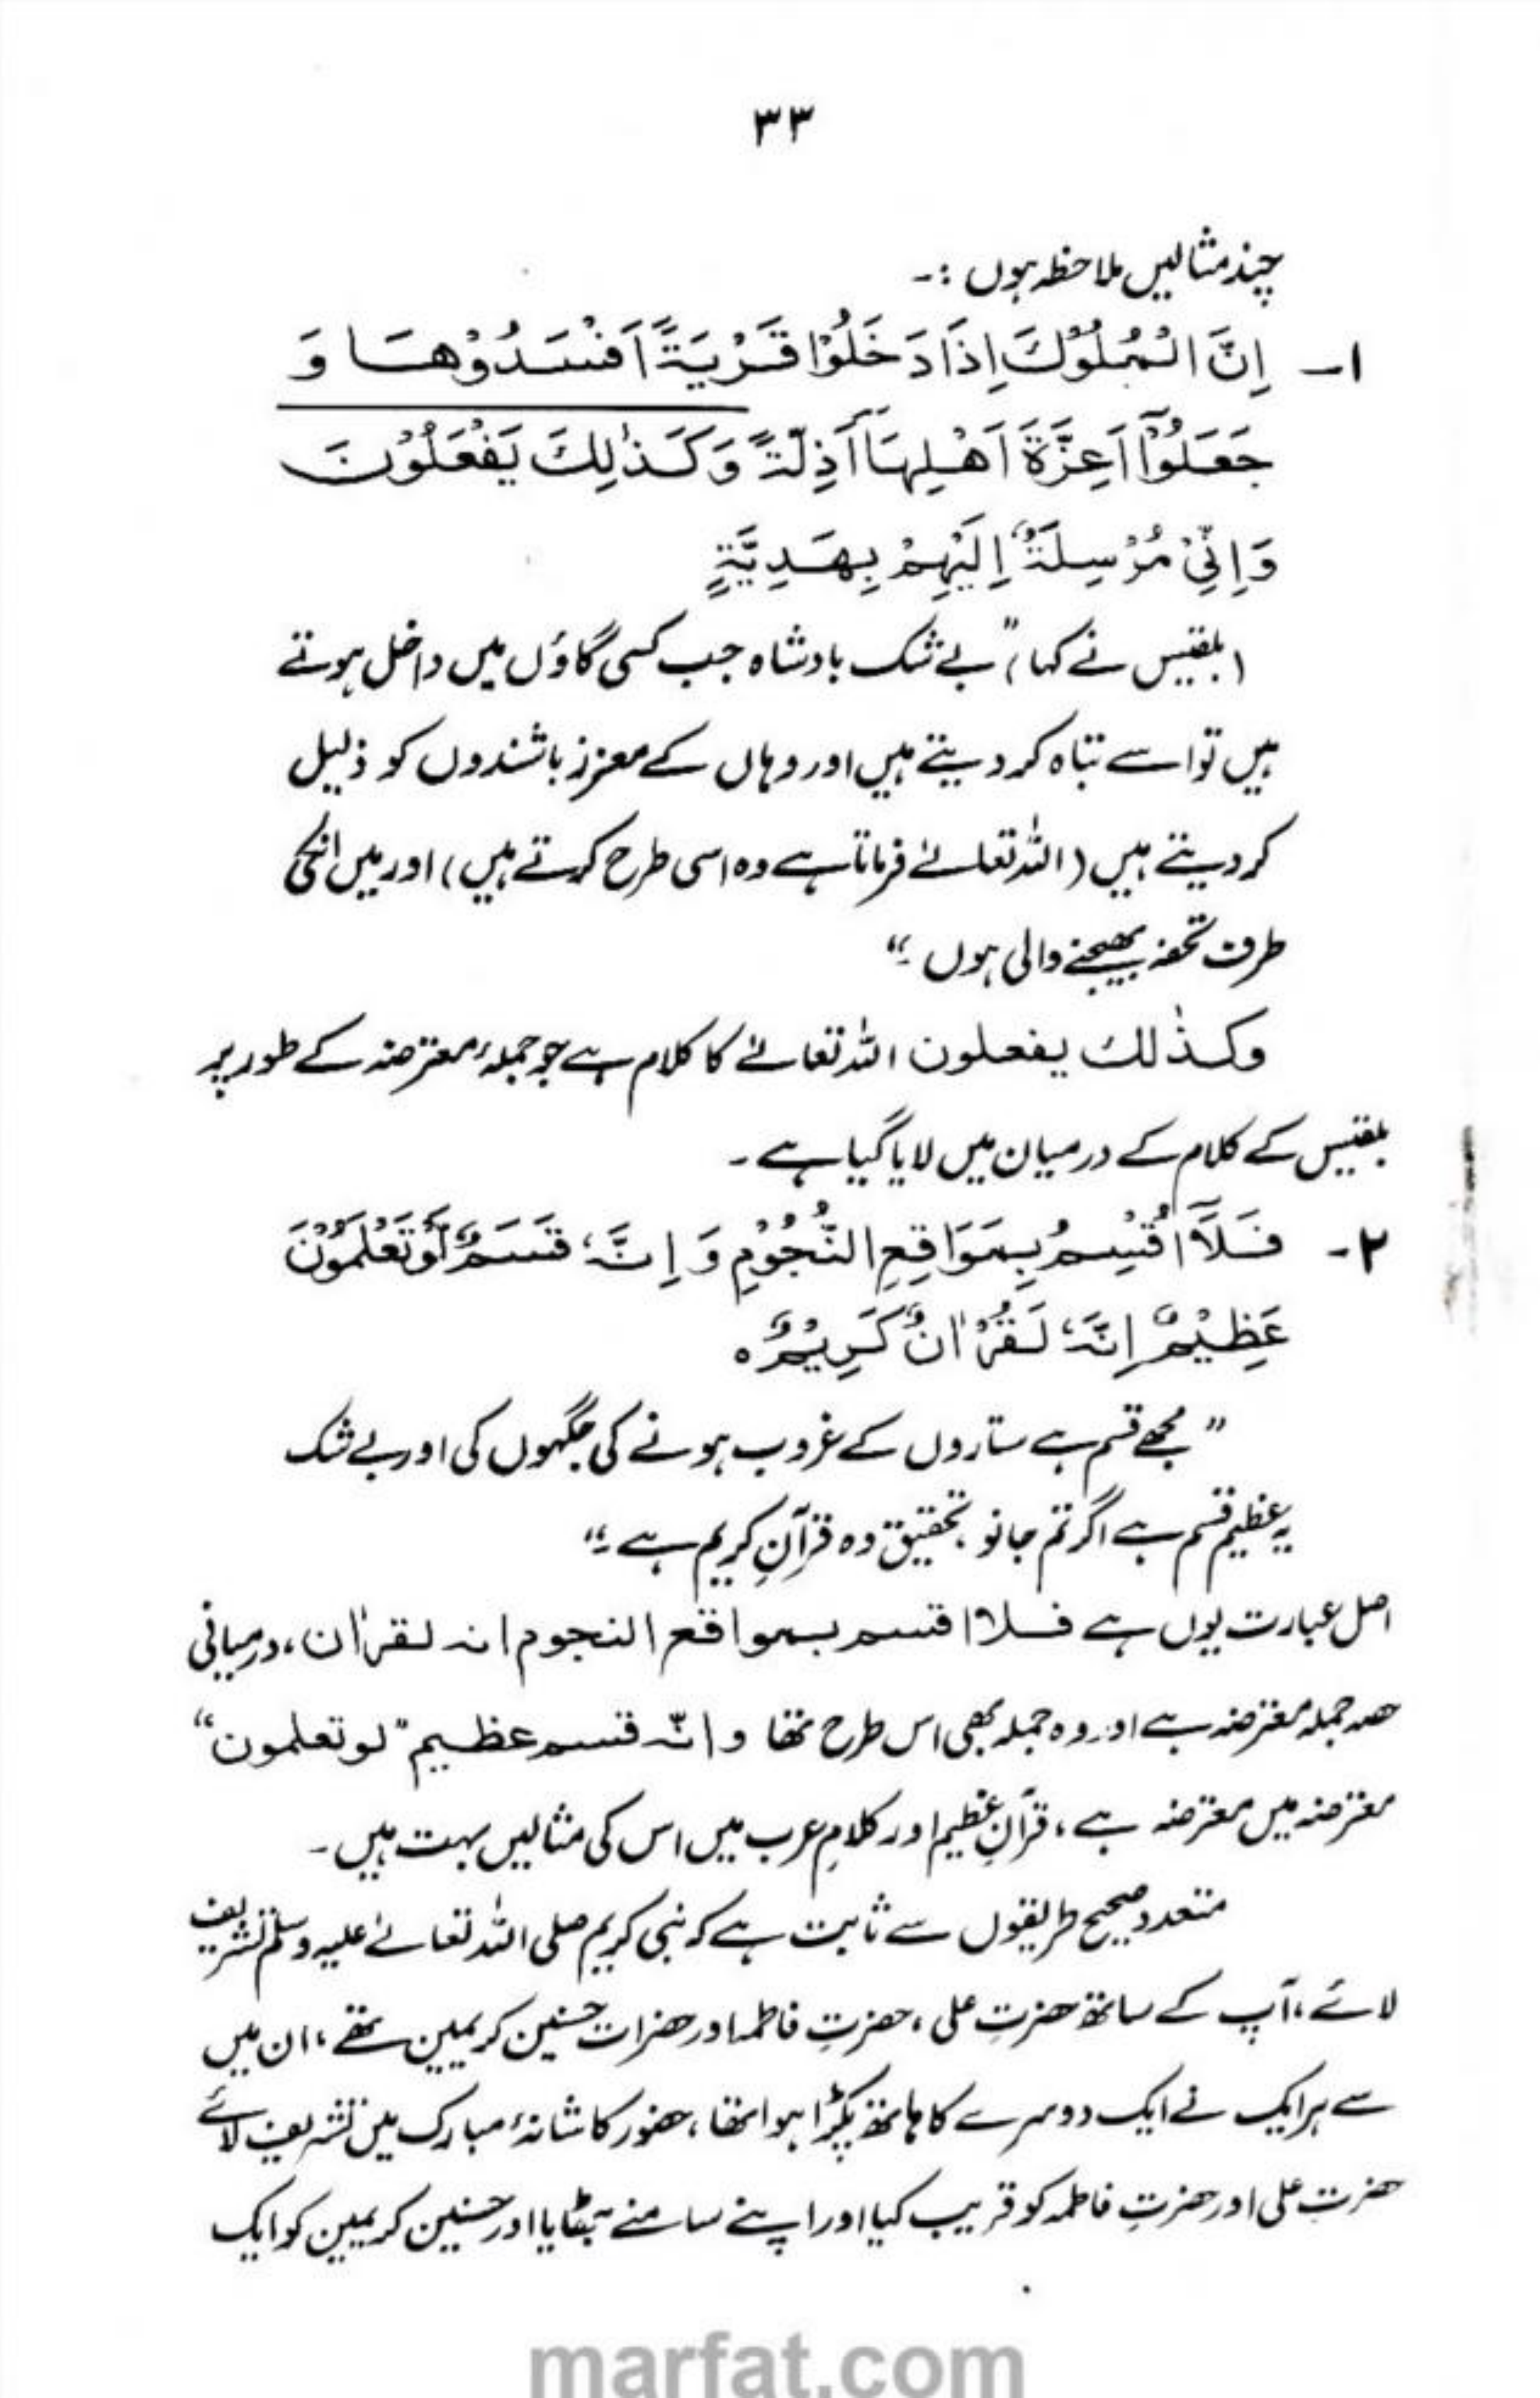 ۳۳
چند مثالیں ملاحظہ ہوں :-
۱- اِنَّ الْمُلُوْكَ اِذَا دَخَلُوْا قَرْيَةً اَفْسَدُوْهَا وَ
جَعَلُوْٓا اَعِزَّةَ اَهْلِهَآ اَذِلَّةً وَكَذٰلِكَ يَفْعَلُوْنَ
وَاِنِّيْ مُرْسِلَةٌ اِلَيْهِمْ بِهَدِيَّةٍ
(بلقیس نے کہا) ”بے شک بادشاہ جب کسی گاؤں میں داخل ہوتے
ہیں تو اسے تباہ کر دیتے ہیں اور وہاں کے معزز باشندوں کو ذلیل
کر دیتے ہیں (اللہ تعالیٰ فرماتا ہے وہ اسی طرح کرتے ہیں) اور میں انکی
طرف تحفہ بھیجنے والی ہوں۔“
وکذٰلك يفعلون اللہ تعالیٰ کا کلام ہے جو جملۂ معترضہ کے طور پر
بلقیس کے کلام کے درمیان میں لایا گیا ہے۔
۲- فَلَآ اُقْسِمُ بِمَوَاقِعِ النُّجُوْمِ وَ اِنَّهٗ قَسَمٌ لَّوْ تَعْلَمُوْنَ
عَظِيْمٌ اِنَّهٗ لَقُرْاٰنٌ كَرِيْمٌ ہ
”مجھے قسم ہے ستاروں کے غروب ہونے کی جگہوں کی اور بے شک
یہ عظیم قسم ہے اگر تم جانو، تحقیق وہ قرآنِ کریم ہے۔“
اصل عبارت یوں ہے فلا اقسم بمواقع النجوم انه لقراٰن، درمیانی
حصہ جملہ معترضہ ہے اور وہ جملہ بھی اس طرح تھا وانّه قسم عظيم ”لو تعلمون“
معترضہ میں معترضہ ہے، قرآنِ عظیم اور کلامِ عرب میں اس کی مثالیں بہت ہیں۔
متعدد صحیح طریقوں سے ثابت ہے کہ نبی کریم صلی اللہ تعالیٰ علیہ وسلم تشریف
لائے، آپ کے ساتھ حضرتِ علی، حضرتِ فاطمہ اور حضرات حسنین کریمین تھے، ان میں
سے ہر ایک نے ایک دوسرے کا ہاتھ پکڑا ہوا تھا، حضور کاشانۂ مبارک میں تشریف لائے
حضرتِ علی اور حضرتِ فاطمہ کو قریب کیا اور اپنے سامنے بٹھایا اور حسنین کریمین کو ایک
marfat.com